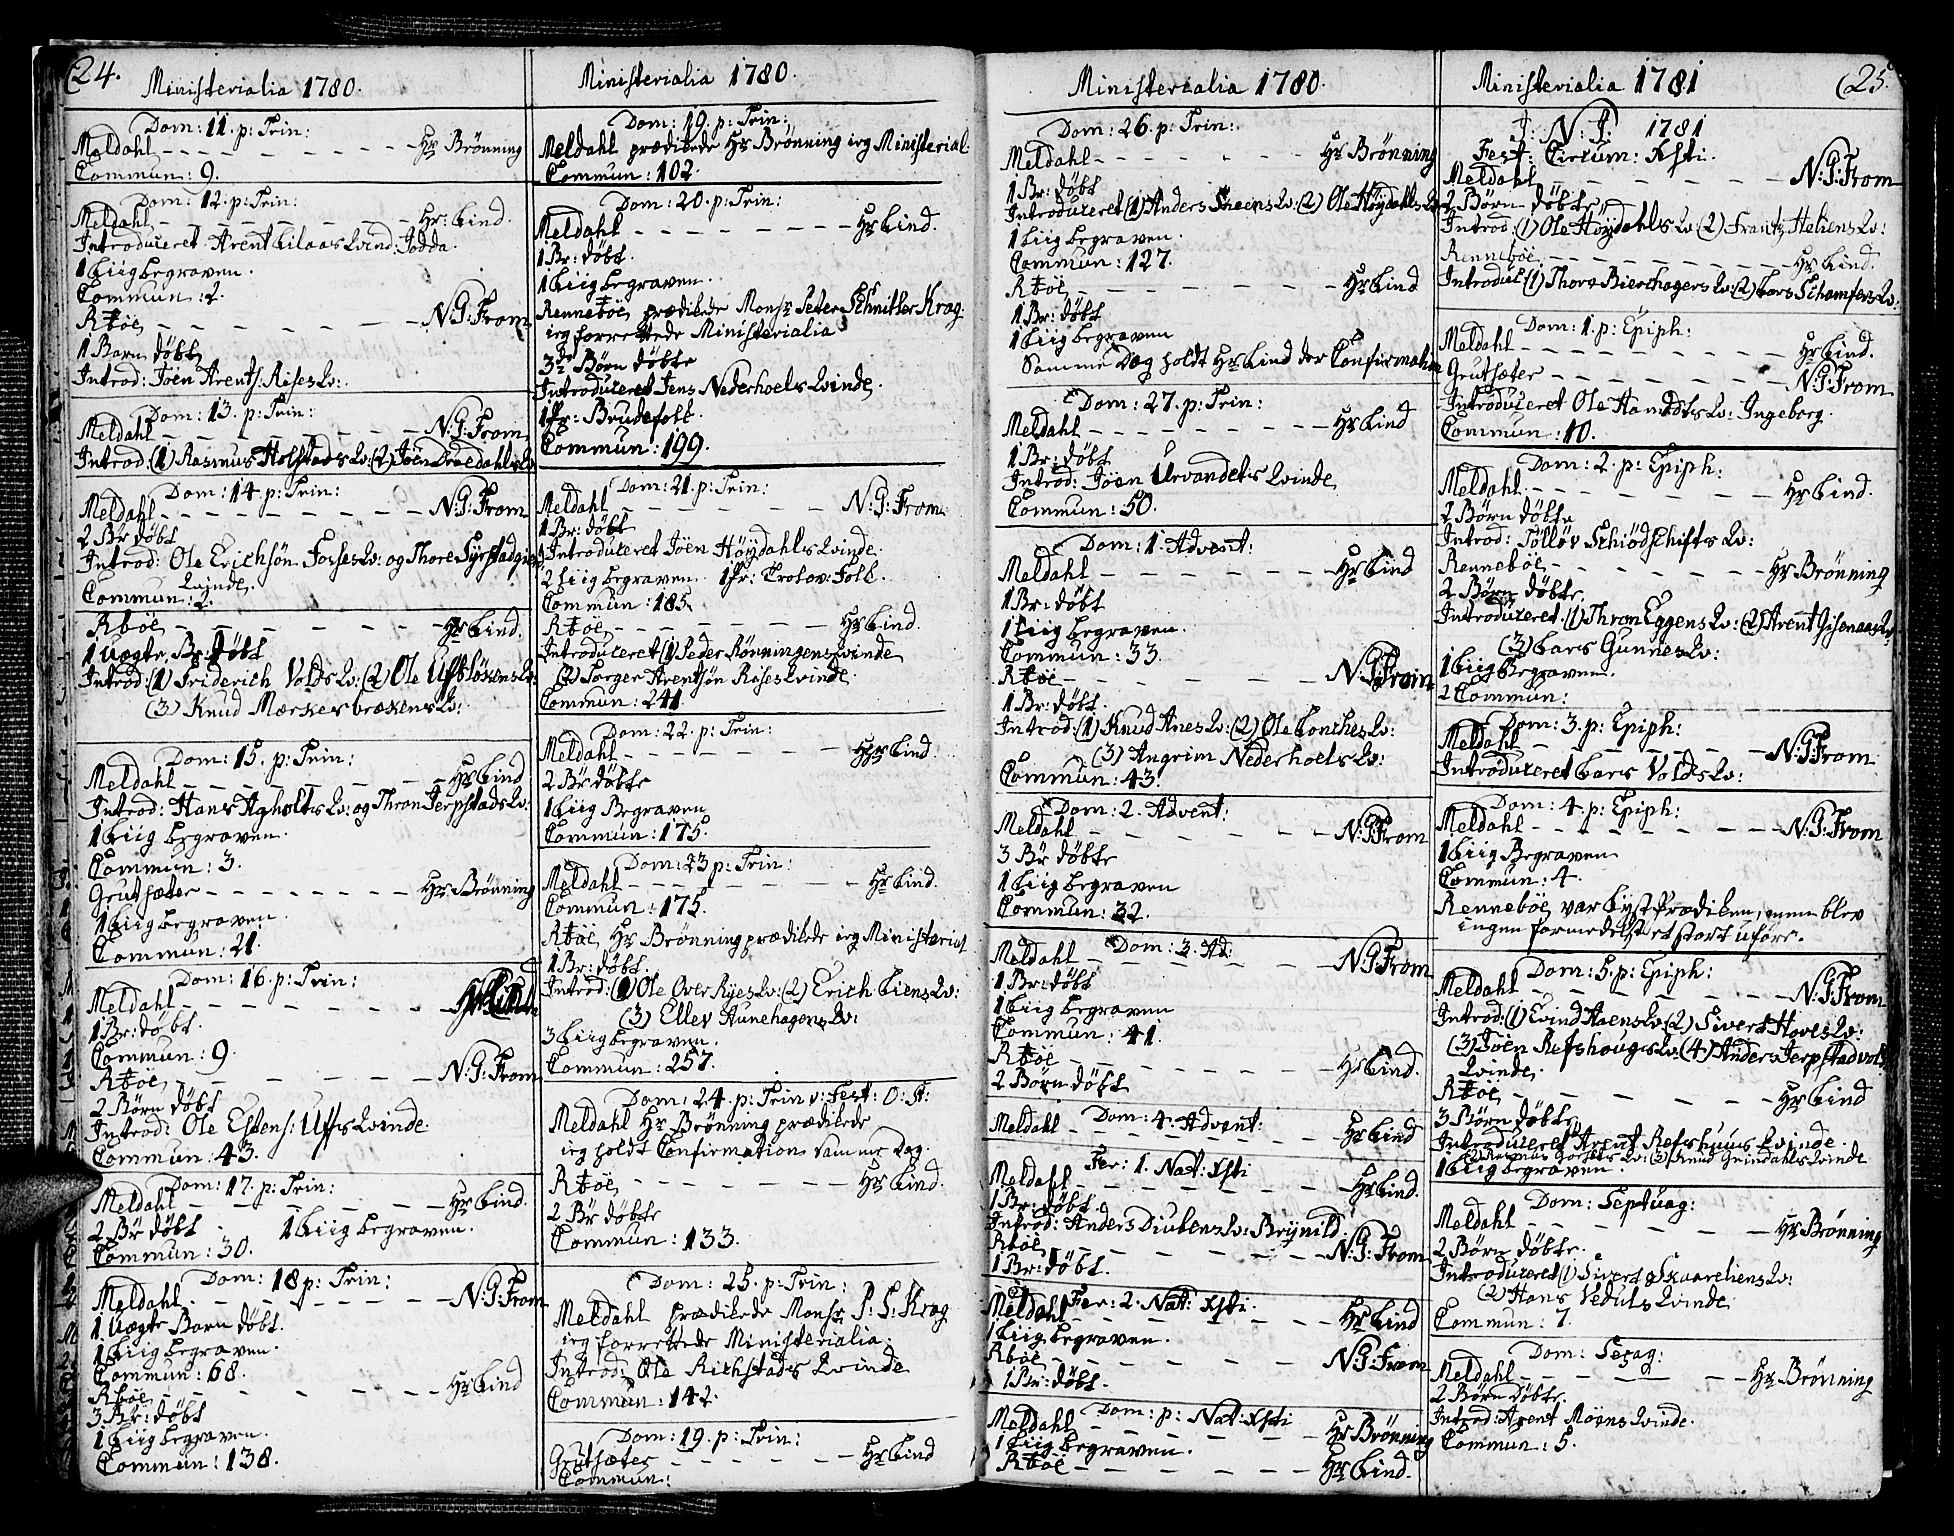 24.
Ministerialia 1780.
Dom: 11. p: Trin:
Meldahl - - - Hr Brønning
Commun: 9.
Dom: 12. p: Trin:
Meldahl - - - Hr: Lind.
Introduceret Arent Lilaas Qvind: Jodda.
1 Liig begraven.
Commun: 2.
Rbøe, - - - N: G: From
1 Barn døbt
Introd: Joen Arents: Rises Qv:
Dom: 13. p: Trin:
Meldahl - - - N: G: From
Introd: (1) Rasmus Holstads Qv: (2) Joen Dragdahls Qv
Dom: 14. p: Trin:
Meldahl - - - N: G: From
2 Br døbt
Introd: Ole Erichsøn Fosses Qv: og Thore Syrstad
Qvinde,
Commun: 2.
Rbøe - - - Hr Lind.
1 Uægte Br: døbt
Introd: (1) Friderich Volds Qv: (2) Ole Ufbløsens Qv:
(3) Knud Mærkesbrækens Qv:
Dom: 15. p: Trin:
Meldahl - - - Hr Lind
Introd: Hans Agholts Qv: og Thron Jerpstads Qv:
1 Liig begraven.
Commun: 3.
Grutsæter - - - Hr Brønning
1 Liig begraven.
Commun: 21.
Dom: 16. p: Trin:
Meldahl - - - Hr Lind
1 Br: døbt.
Commun: 9.
Rbøe, - - - N: G: From
2 Børn døbt
Introd: Ole Estens: Uffs Qvinde.
Commun: 43.
Dom: 17. p: Trin:
Meldahl - - - Hr Lind.
2 Br døbt. 1 Liig begraven.
Commun: 30.
Dom: 18 p: Trin:
Meldahl. - - - N: G: From
1 Uægte Barn døbt.
1 Liig begraven.
Commun: 68.
Rbøe - - - Hr Lind
3 Br: døbt
1 Liig begraven.
Commun: 138.
Ministerialia 1780.
Dom: 19. p: Trin:
Meldahl prædikede Hr Brønning ieg Ministerial.
Commun: 102.
Dom: 20. p: Trin:
Meldahl - - - Hr Lind.
1 Br: døbt.
1 Liig begraven.
Rennebøe, prædikede Monsr Peter Schnitler Krag.
ieg forrettede Ministerialia
3de Børn døbte
Introduceret Jens Nederhoels Qvinde.
1 Pr: Brudefolk.
Commun: 199.
Dom: 21. p: Trin:
Meldahl - - - N: G: From.
1 Br: døbt
Introduceret Joen Høydahls Qvinde.
2 Liig begraven. 1 Pr: Trolov: Folk.
Commun: 185.
Rbøe, - - - Hr Lind.
Introduceret (1) Peder Rønningens Qvinde
(2) Torger Arentsøn Rises Qvinde.
Commun: 241.
Dom: 22. p: Trin:
Meldahl - - - Hr Lind.
2 Br døbte
1 Liig Begraven
Commun: 175.
Dom: 23 p: Trin:
Meldahl - - - Hr Lind.
Commun: 175.
Rbøe, Hr Brønning prædikede ieg Ministerial
1 Br: døbt.
Introd: (1) Ole Over Ryes Qv: (2) Erich Liens Qv:
(3) Ellev Aunehagens Qv:
3 Liig begraven.
Commun: 257.
Dom: 24. p: Trin v: Fest: O: S:
Meldahl Hr Brønning prædikede
ieg holdt Confirmation samme Dag.
Rbøe, - - - Hr Lind.
2 Br døbte
Commun: 133.
Dom: 25. p: Trin:
Meldahl prædikede Monsr P: S: Krag
ieg forrettede Ministerialia.
Introd: Ole Richstads Qvinde
Commun: 142.
Dom: 19. p: Trin:
Grutsæter - - - Hr Lind
Commun:
Ministerialia 1780.
Dom: 26. p: Trin:
Meldahl - - - Hr Brønning
1 Br: døbt
Introduceret (1) Anders Sneens Qv: (2) Ole Høydahls Qv
1 Liig begraven.
Commun: 127.
Rbøe - - - Hr Lind
1 Br: døbt
1 Liig begraven
Samme Dag holdt Hr Lind der Confirmation
Dom: 27. p: Trin:
Meldahl - - - Hr Lind
1 Br: døbt
Introd: Joen Urvandets Qvinde
Commun: 50.
Dom: 1. Advent:
Meldahl - - - Hr Lind
1 Br: døbt
1 Liig begraven.
Commun: 33.
Rbøe - - - N: G: From
1 Br: døbt.
Introd: (1) Knud Anes Qv: (2) Ole Lonches Qv:
(3) Angrim Nederhoels Qv:
Commun: 43.
Dom: 2. Advent:
Meldahl - - - N: G: From
3 Br døbte
1 Liig begraven
Commun: 32.
Dom: 3. Ad:
Meldahl - - - N G: From
1 Br: døbt
1 Liig begraven
Commun: 41.
Rbøe - - - Hr Lind.
2 Børn døbt
Dom: 4. Advent:
Meldahl - - - Hr Lind
Fer: 1. Nat: Xsti
Meldahl - - - Hr Lind.
1 Br: døbt.
Introd: Anders Diubens Qv: Brynild.
Rbøe, - - - N: G: From
1 Br: døbt.
Fer: 2. Nat: Xsti.
Meldahl - - - Hr Lind
1 Liig begraven.
Rbøe - - - N: G: From
1 Br: døbt.
Dom: p: Nat: Xsti
Meldahl - - - Hr Brønning
1 Liig begraven.
Rbøe - - - Hr Lind.
Ministerialia 1781
(25.
J: N: J: 1781
Fest: Circum: Xsti.
Meldahl - - - N: G: From
2 Børn døbte,
Introd: (1) Ole Høydahls Qv: (2) Frantz Heliens Qv:
Rennebøe, - - - Hr Lind.
Introduc: (1) Thore Bierchagers Qv: (2) Lars Schamfers Qv.
Dom: 1. p: Epiph:
Meldahl - - - Hr Lind.
Grutsæter - - - N: G: From
Introduceret Ole Hamdets Qv: Ingeborg.
Commun: 10.
Dom: 2. p: Epiph:
Meldahl - - - Hr Lind.
2 Børn døbte
Introd: Tolløv Schiødschifts Qv:
Rennebøe, - - - Hr Brønning
2 Børn døbte,
Introduceret: (1) Thron Eggens Qv: (2) Arent Gisenaas Qv
(3) Lars Gunnes Qv:
1 Liig Begraven.
2 Commun:
Dom: 3. p: Epiph:
Meldahl - - - N: G: From.
Introduceret Lars Volds Qv:
Dom: 4. p: Epiph:
Meldahl - - - N: G: From
1 Liig Begraven
Commun: 4.
Rennebøe, var Lyst Prædiken, men blev
ingen formedelst et stort uføre.
Dom: 5. p: Epiph:
Meldahl - - - N: G: From
Introd: (1) Evind Haens Qv: (2) Sivert Hoves Qv:
(3) Joen Refshougs Qv: (4) Anders Jerpstadvold
Qvinde,
Rbøe, - - - Hr Lind
3 Børn døbte,
Introduceret Arent Refshuus Qvinde.
(3) Knud Grindahls Qvinde
1 Liig begraven.
Dom: Septuag:
Meldahl - - - Hr Brønning
2 Børn døbte.
Introduceret (1) Sivert Skaareliens Qv:
(2) Hans Veduls Qvinde
Commun: 7.
Dom: Sexag:
Meldahl - - - Hr Brønning
2 Børn døbte,
Introd: Arent Moens Qvinde.
Commun: 5.